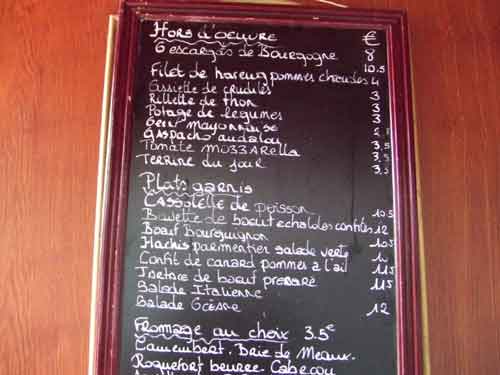 Hors d'oeuvre €
6 escargots de Bourgogne 8
10.5
Filet de hareng pommes chaudes 4
Assiette de crudités 3
Rillette de thon 3
Potage de légumes 3
Oeuf mayonnaise
Gaspacho andalou 3.5
Tomate mozzarella 3.5
Terrine du jour 3.5
Plats garnis
Cassolette de poisson 10.5
Bavette de boeuf echalotes confites 12
Boeuf Bourguignon 10.5
Hachis parmentier salade verte
Confit de canard pommes a l'ail 11.5
Tartare de boeuf préparé 11.5
Salade Italienne
Salade 12
Fromage au choix 3.5€
Camembert. Brie de Meaux.
Roquefort beurre. Cabecou